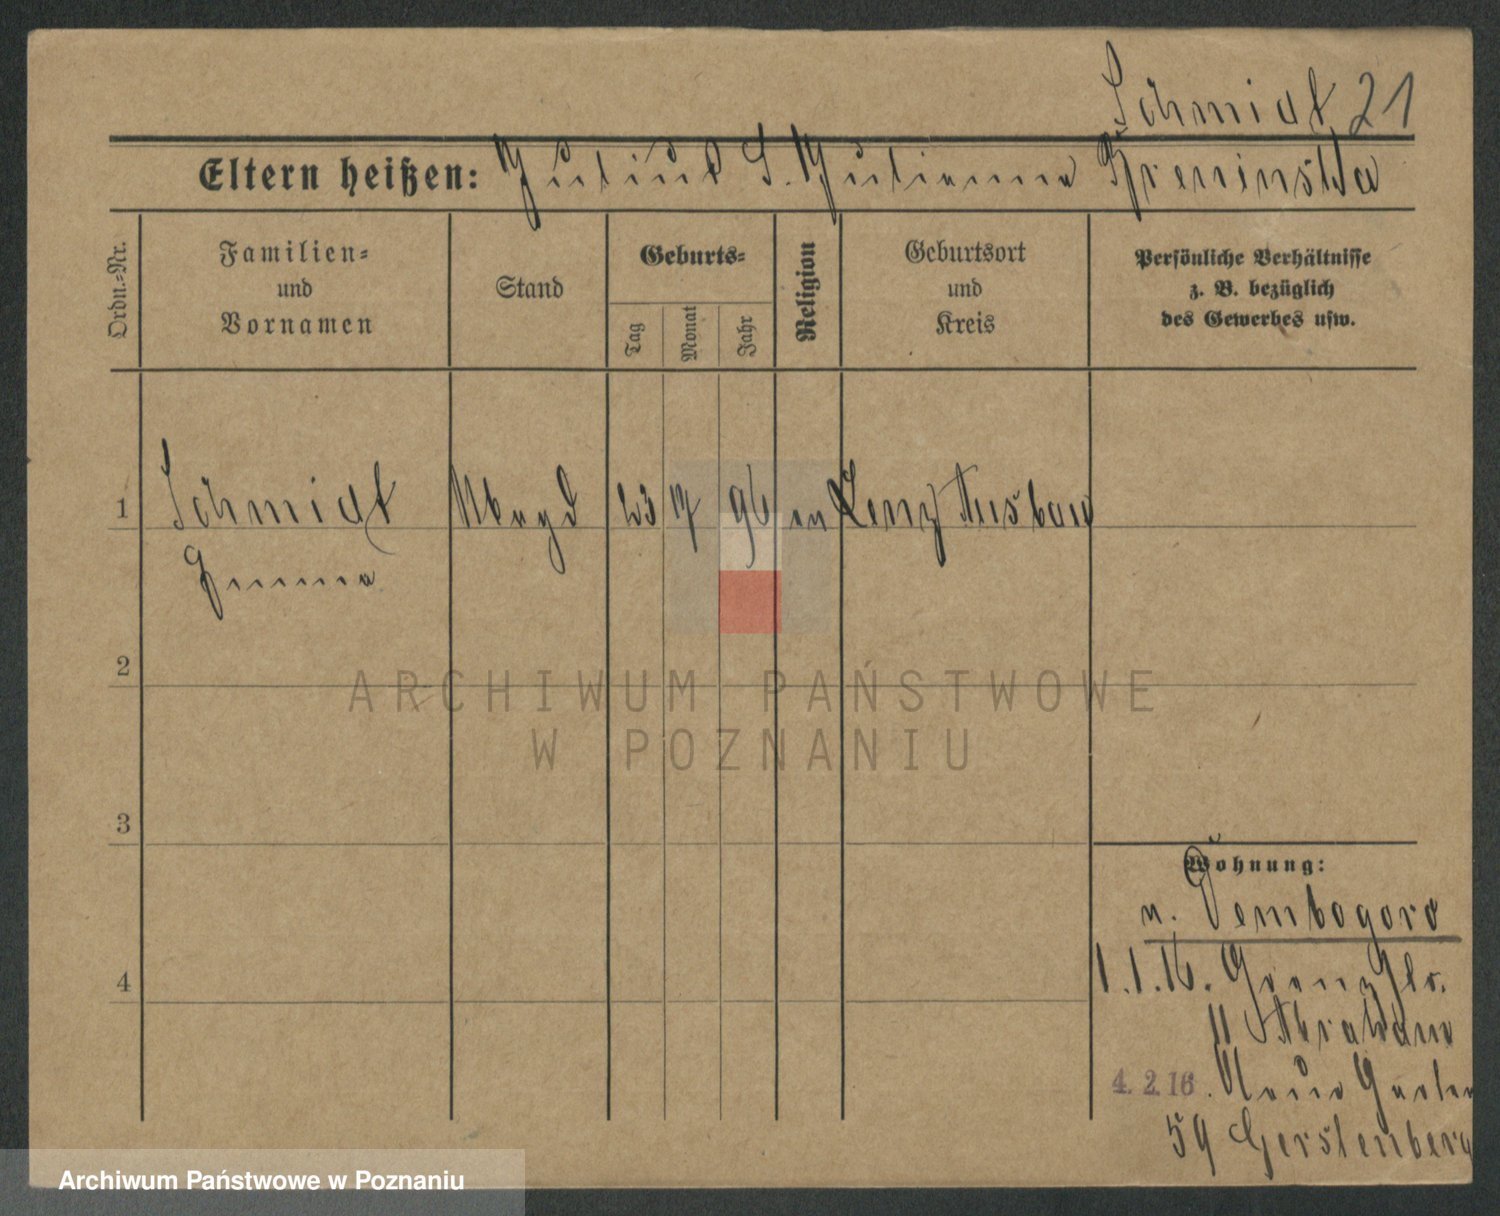 Schmidt 21
Eltern heißen: Julius S. Julianna
Ordn.=Nr.
Familien=
und
Vornamen
Stand
Geburts=
Tag
Monat
Jahr
Religion
Geburtsort
und
Kreis
Persönliche Verhältnisse
z. B. bezüglich
des Gewerbes usw.
1 Schmidt Magd 23 96 ev Ausbau
Emma
2
3
4
Wohnung:
n. Dembogora
1.1.16. Grenzstr.
11 Abraham
4.2.16. Neue Garten
59 Gerstenberg
ARCHIWUM PAŃSTWOWE
W POZNANIU
Archiwum Państwowe w Poznaniu